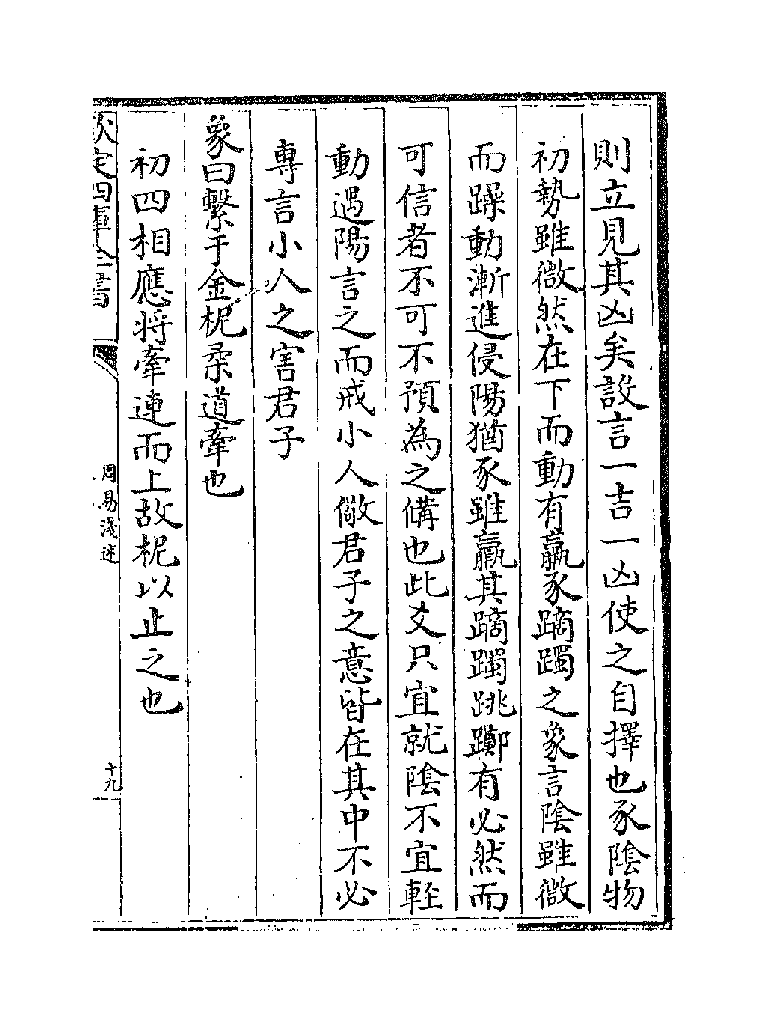 則立見其凶矣設言一吉一凶使之自擇也豕陰物
初勢雖微然在下而動有羸豕蹢躅之象言陰雖微
而躁動漸進侵陽猶豕雖羸其蹢躅跳躑有必然而
可信者不可不預為之備也此爻只宜就陰不宜輕
動遇陽言之而戒小人儆君子之意皆在其中不必
專言小人之害君子
象曰繫于金柅柔道牽也
初四相應将牽連而上故柅以止之也
欽定四庫全書
周易淺述
十九